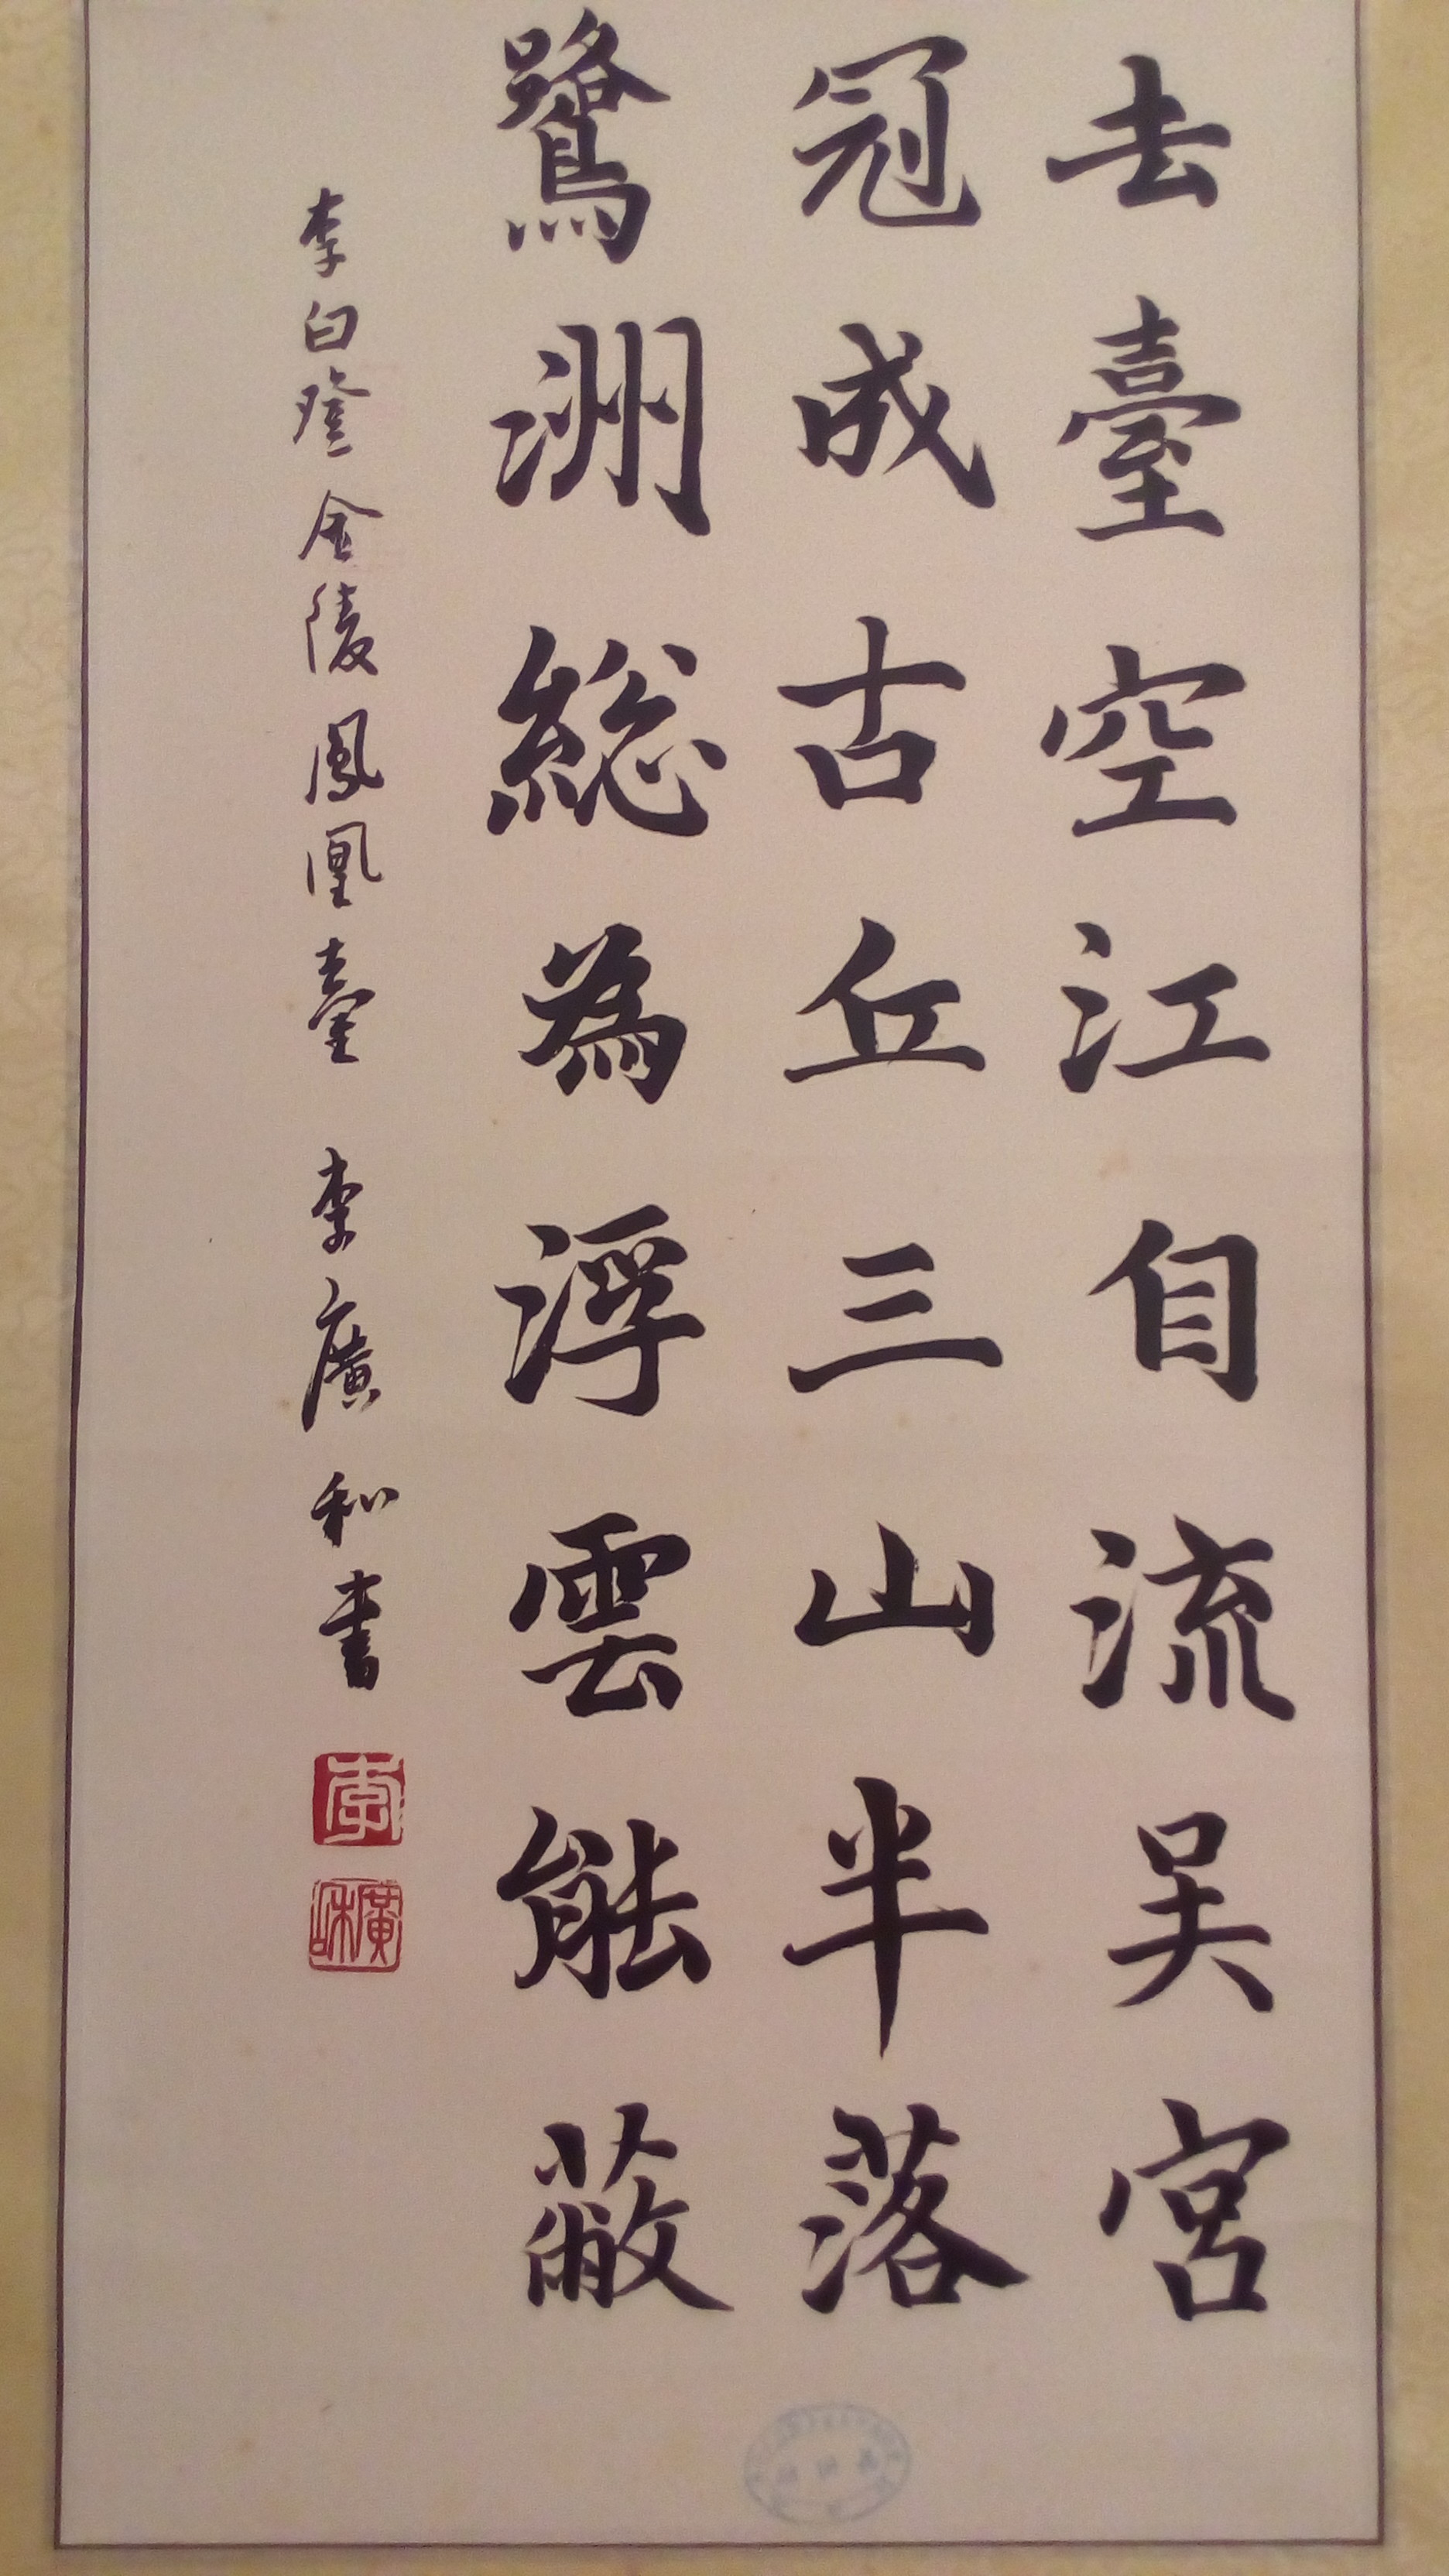 去臺空江自流吴宮
冠成古丘三山半落
鷺洲総為浮雲能蔽
李白登金陵鳳凰臺 李廣和書
李
廣和